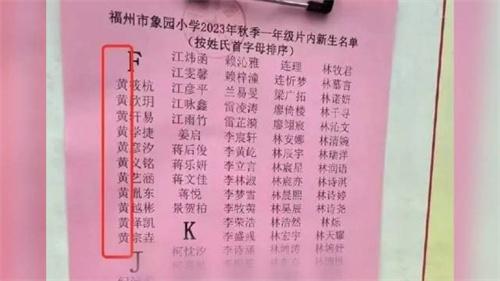 福州市象园小学2023年秋季一年级片内新生名单
（按姓氏首字母排序）
F
黄筱杭
黄欣玥
黄开易
黄学捷
黄宽汐
黄义铭
黄艺涵
黄胤东
黄越彬
黄泽凯
黄宗垚
J
江炜函
江雯馨
江彦平
江咏鑫
江雨竹
姜启
蒋后俊
蒋乐妍
蒋文佳
蒋悦
景贺柏
K
柯忱汐
赖沁雅
赖梓潼
兰易旻
雷凌涛
雷芷漪
李宸轩
李黄屹
李立言
李林淑
李梦雪
李牧英
李荣浩
李盛彧
李诗涵
连理
连忻梦
梁广拓
廖倚楼
廖翊宸
林安娜
林宸宇
林宸星
林宸亦
林晨熙
林昊辰
林浩然
林宏宇
林鸿涛
林牧君
林慕言
林诺妍
林千寻
林沁文
林清婉
林瑞洋
林润语
林诗淇
林诗婷
林诗尧
林烁
林天耀
林婉妤